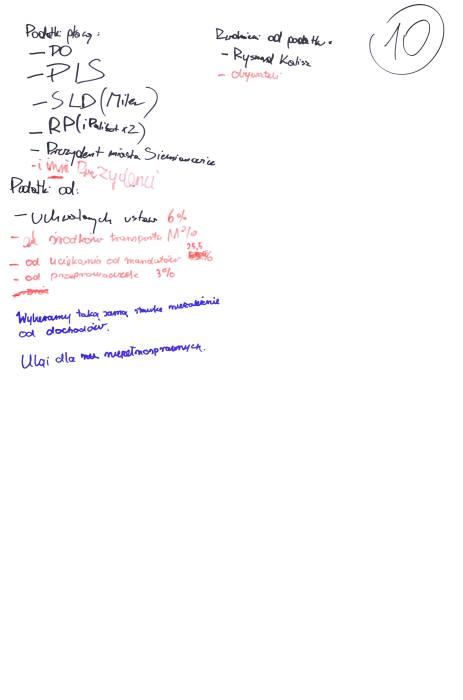 Podatki płacą:
– PO
– PLS
– SLD (Miler)
– RP (i Palikot x2)
– Prezydent miasta Siemianowice
- i inni Prezydenci
Zwolnieni od podatku:
– Ryszard Kalisz
– obywatele
10
Podatki od:
– Uchwalonych ustaw 6%
– od środków transportu
– od uciekania od mandatów 25,5 %
– od przeprowadzek 3%
Wybieramy taką samą stawkę niezależnie
od dochodów.
Ulgi dla niepełnosprawnych.